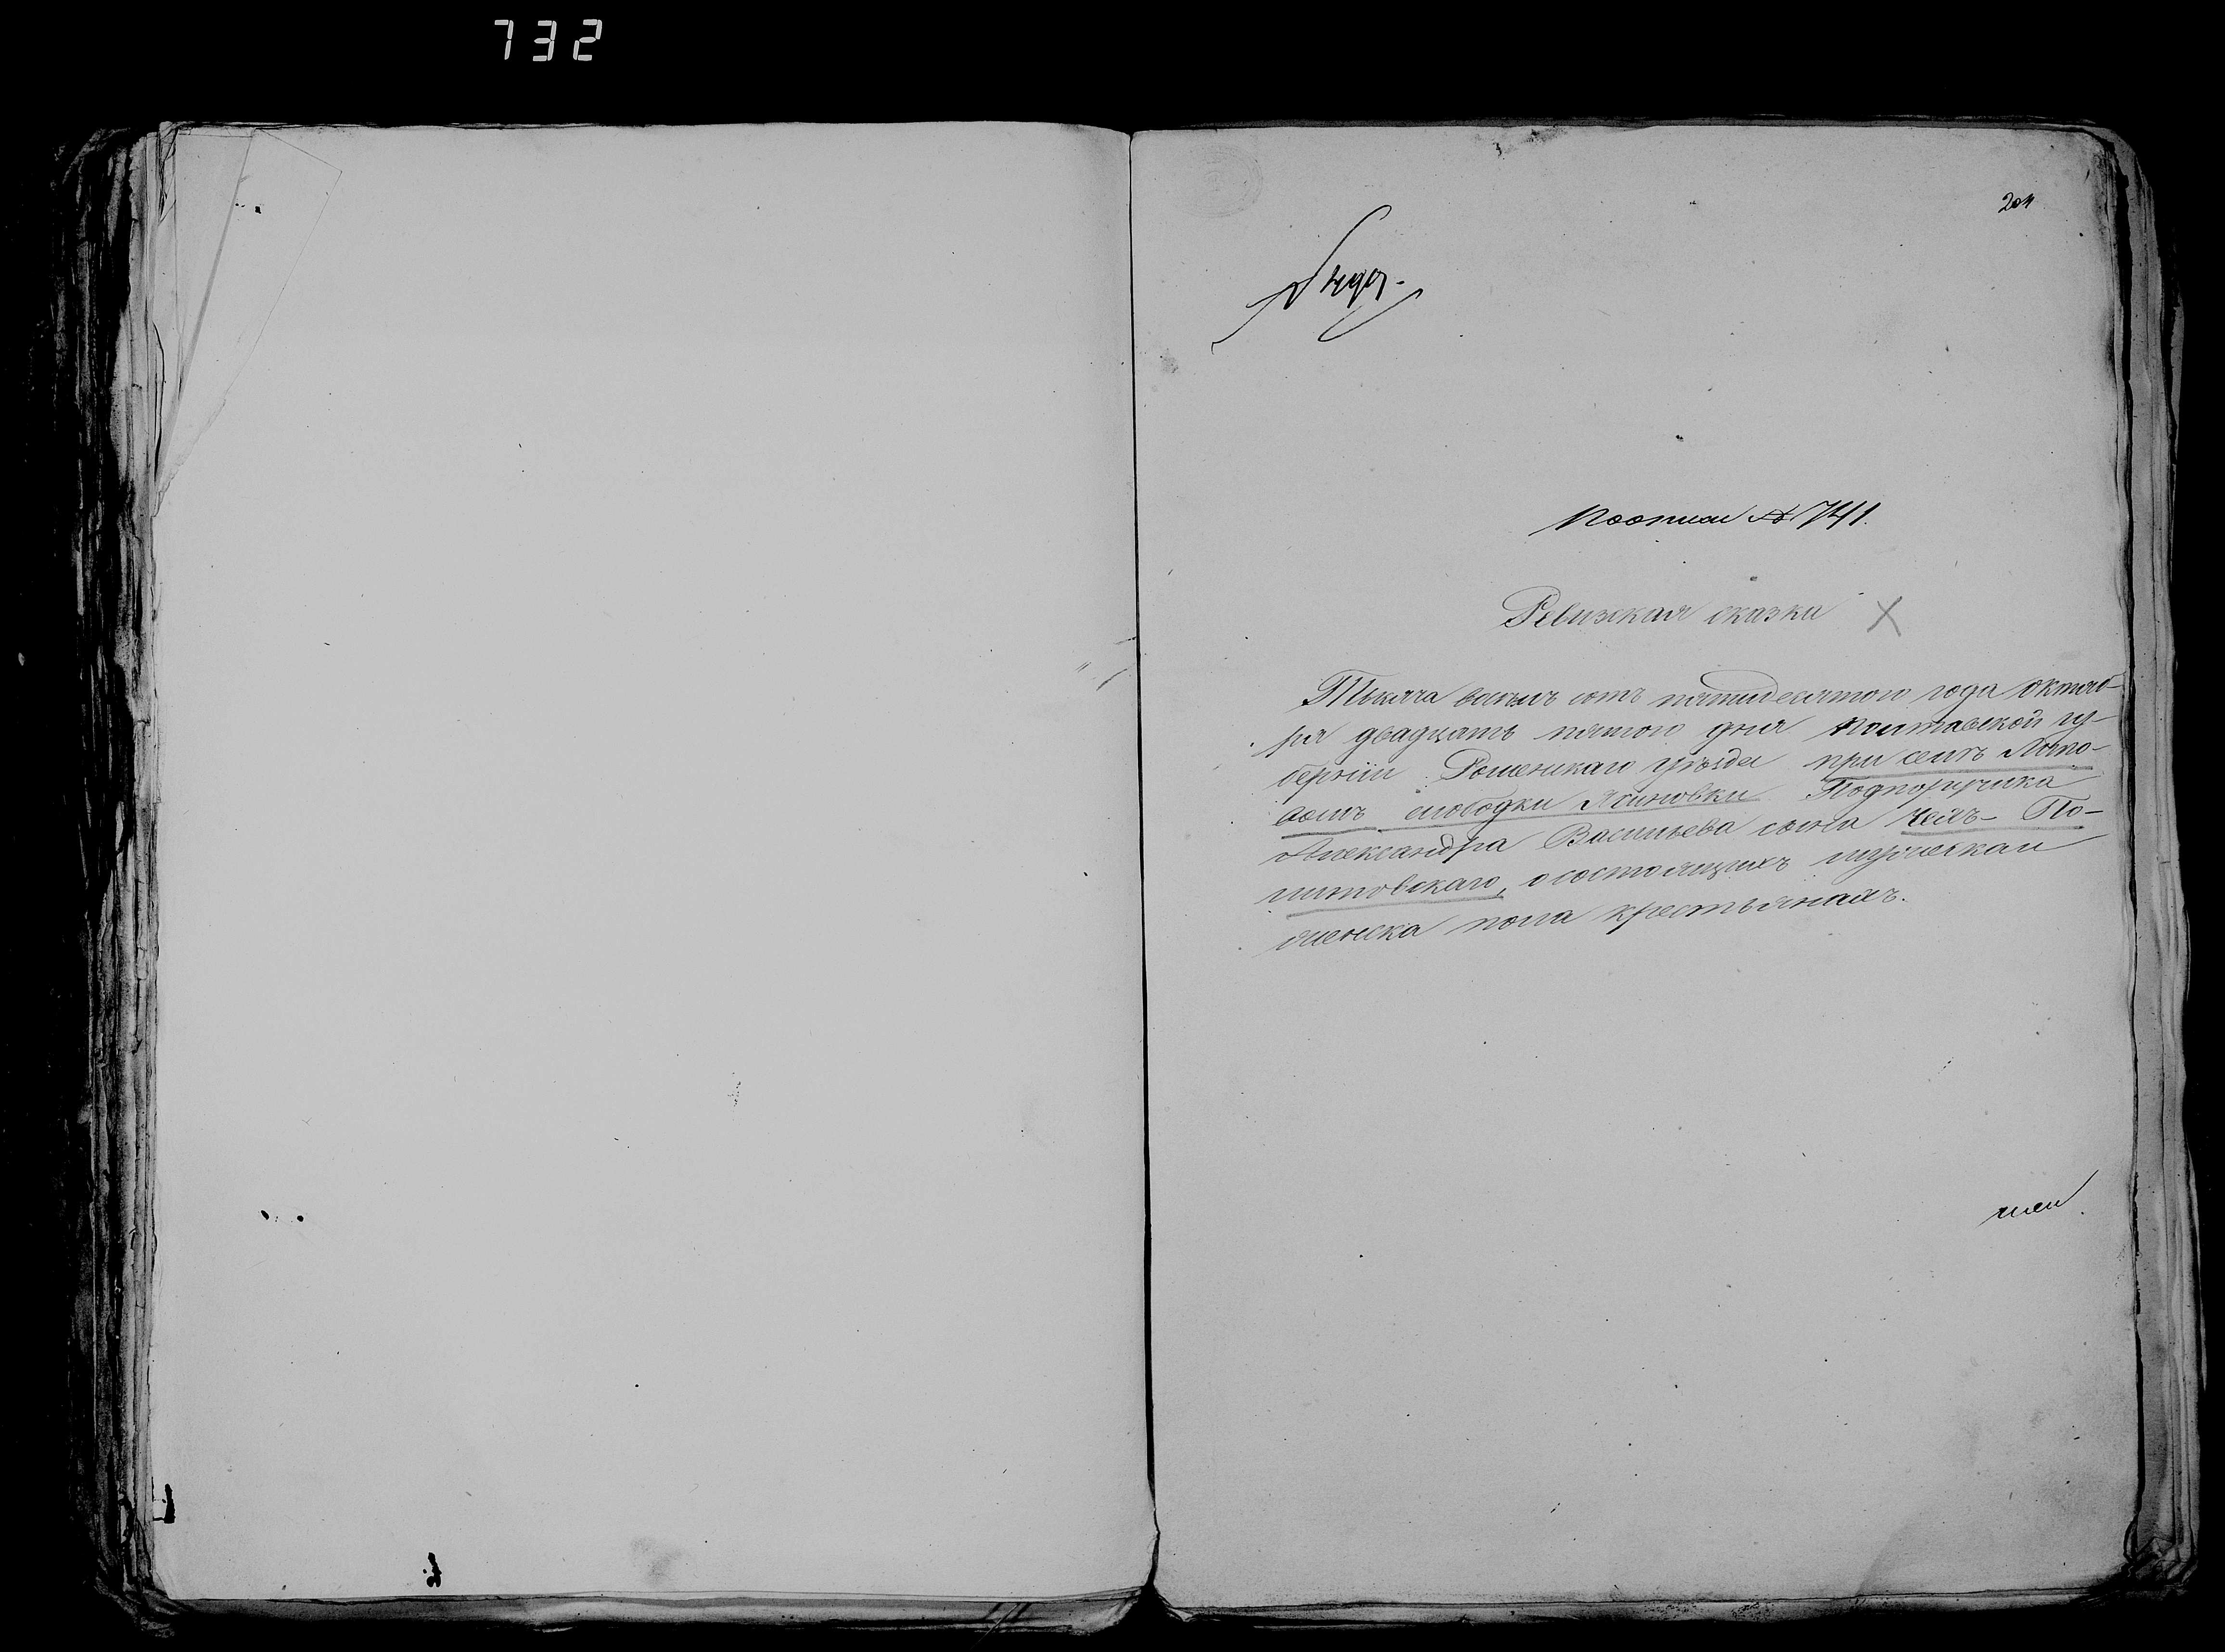 732
204
По описи № 741.
Ревизская сказка
Тысяча восемь сотъ пятидесятого года октяб-
ря двадцать пятого дня Полтавской гу-
берніи Роменскаго уѣзда при селѣ
слободки Ясиновки Подпоручика
Александра Васильева сына По-
литовскаго, о состоящихъ мужеска и
женска пола крестьянахъ.